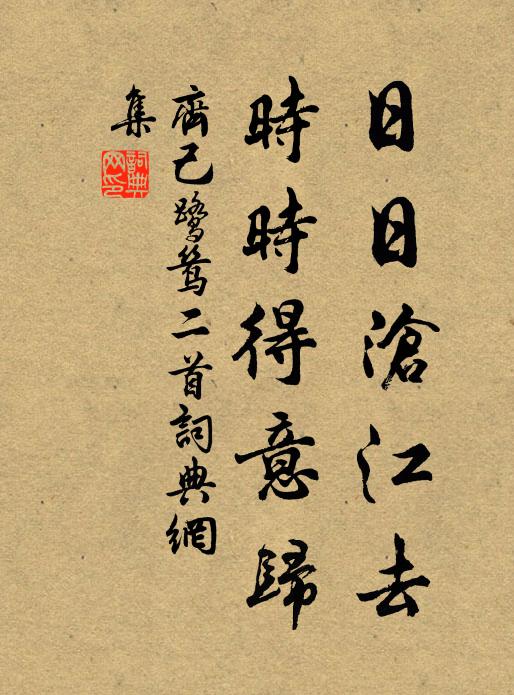 日日滄江去
時時得意歸
齊己鷺鶿二首詞典網
集
詞典
网印